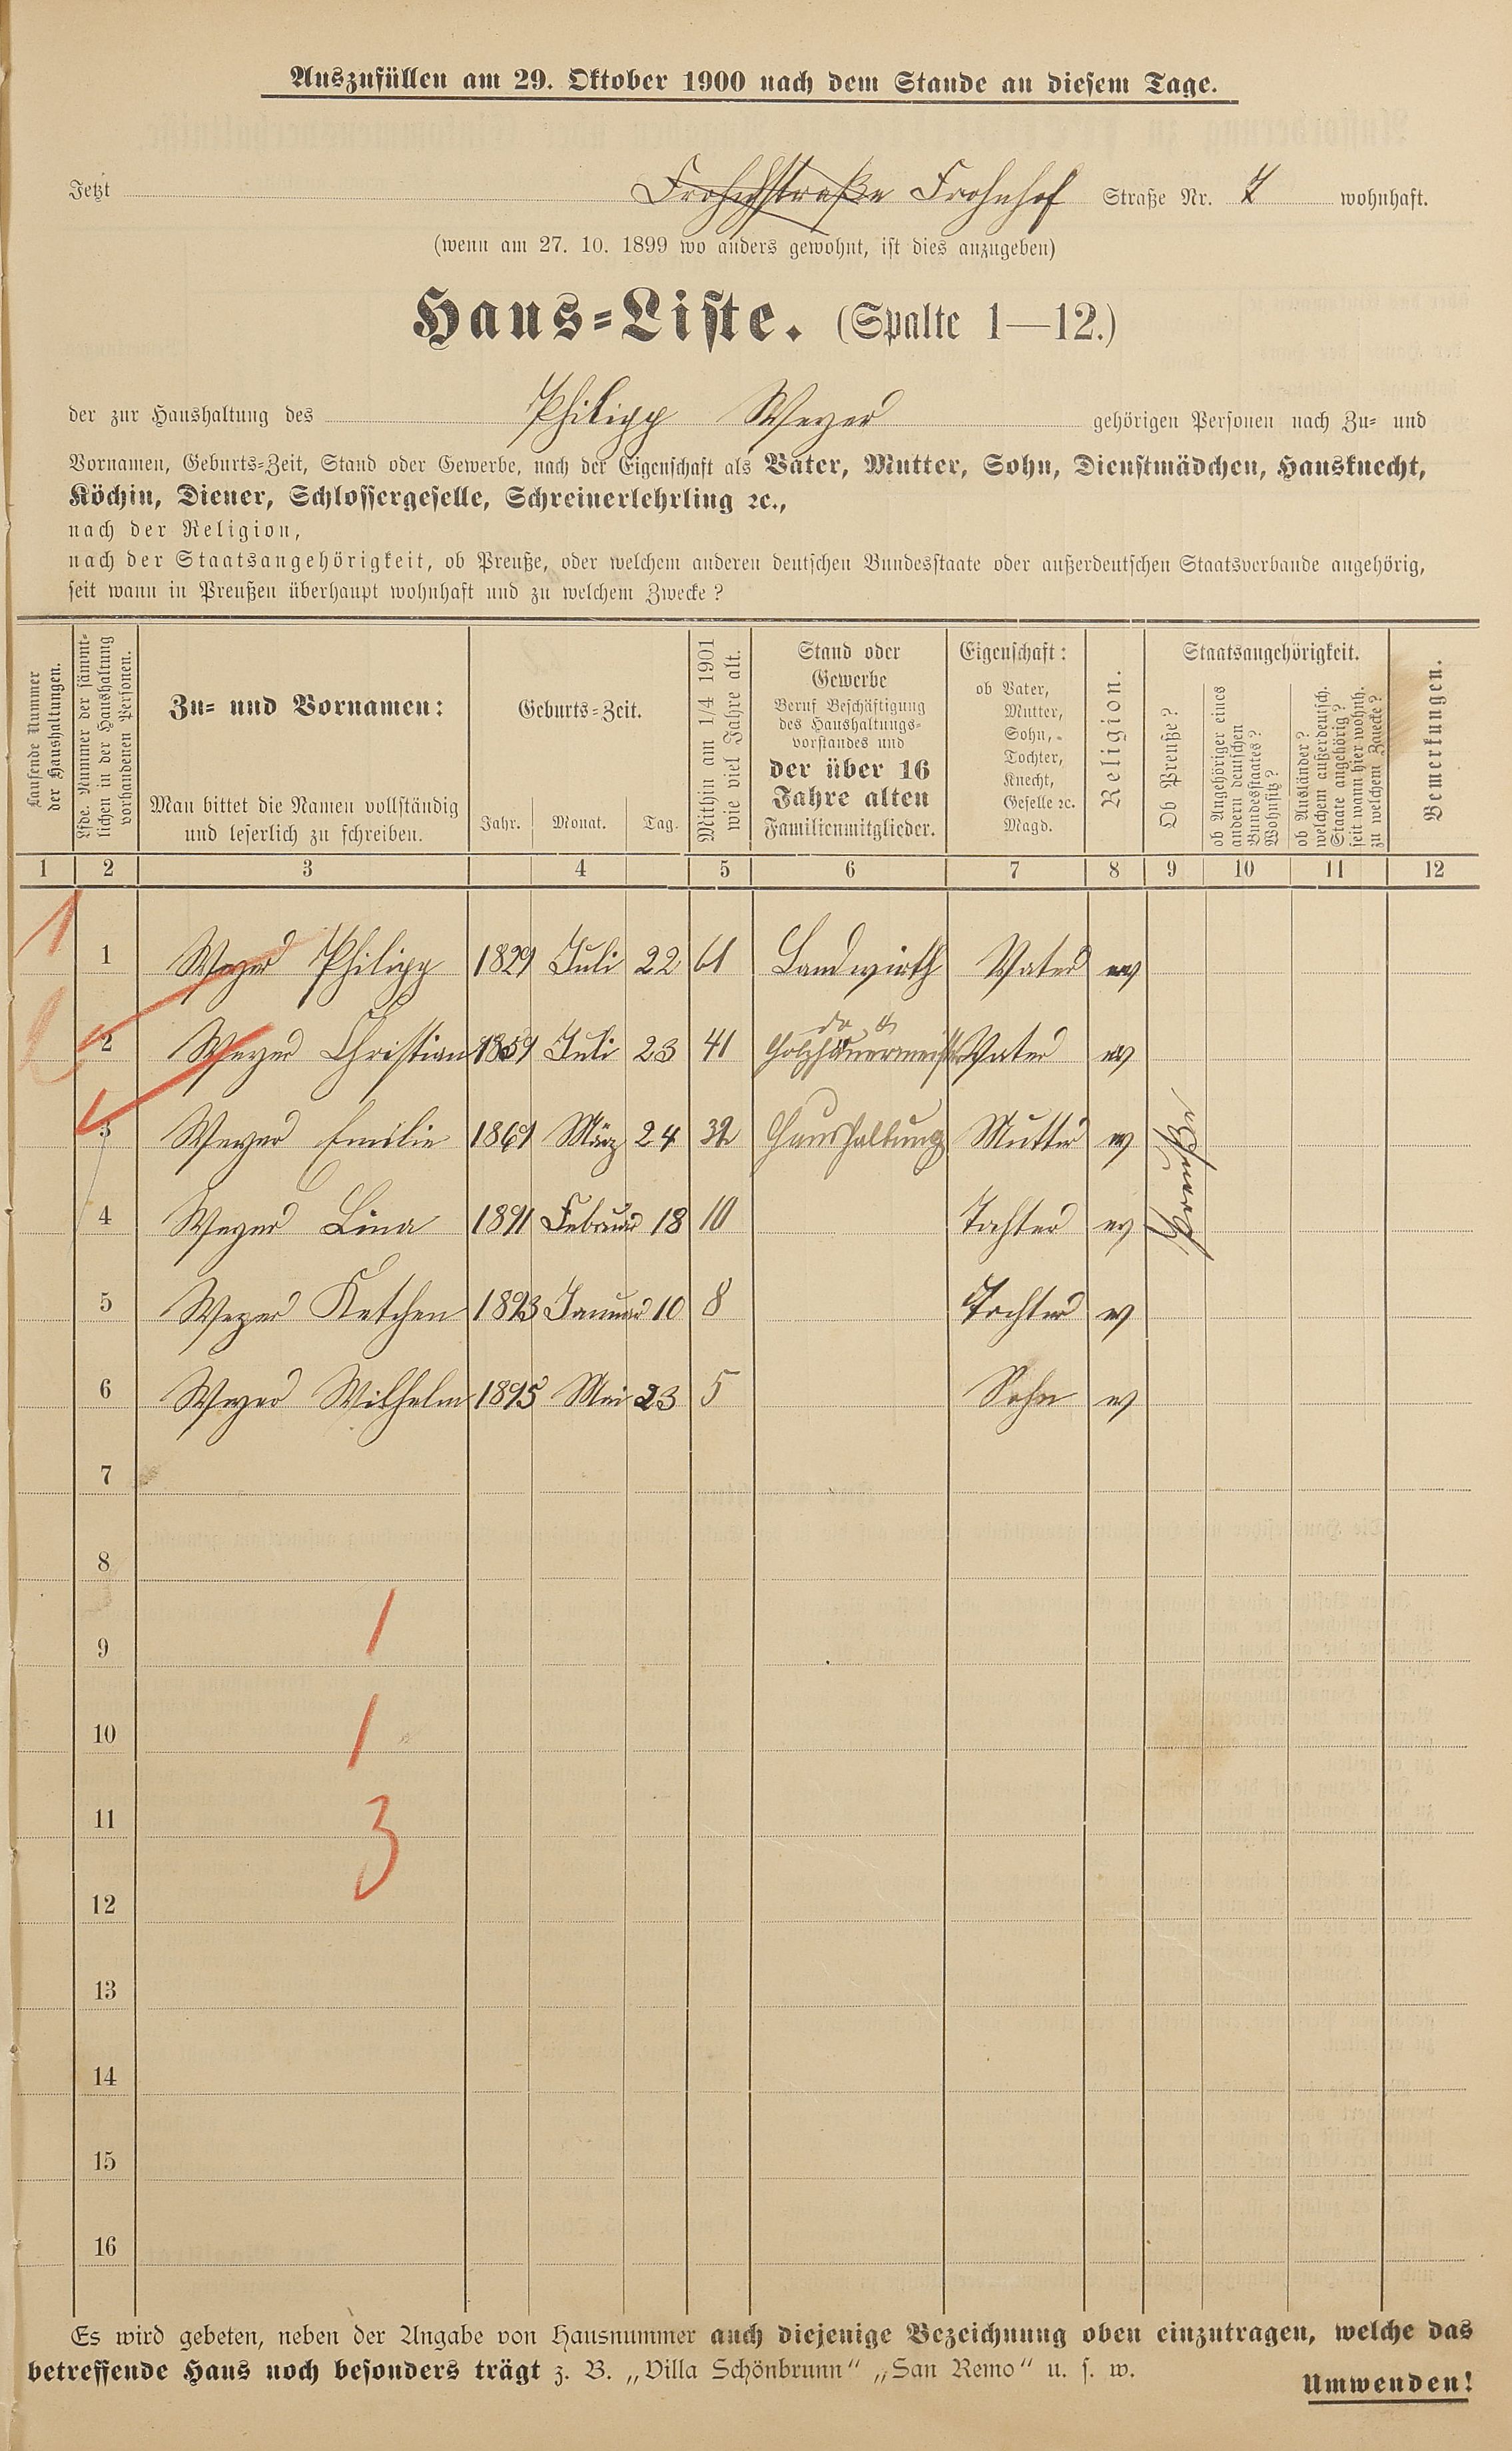 Auszufüllen am 29. Oktober 1900 nach dem Stande an diesem Tage.
Jetzt Frohnhof Straße Nr. 7 wohnhaft.
(wenn am 27. 10. 1899 wo anders gewohnt, ist dies anzugeben)
Haus-Liste. (Spalte 1—12.)
der zur Haushaltung des Philipp Weyer gehörigen Personen nach Zu- und
Vornamen, Geburts-Zeit, Stand oder Gewerbe, nach der Eigenschaft als Vater, Mutter, Sohn, Dienstmädchen, Hausknecht,
Köchin, Diener, Schlossergeselle, Schreinerlehrling ꝛc.,
nach der Religion,
nach der Staatsangehörigkeit, ob Preuße, oder welchem anderen deutschen Bundesstaate oder außerdeutschen Staatsverbande angehörig,
seit wann in Preußen überhaupt wohnhaft und zu welchem Zwecke?
Laufende Nummer
der Haushaltungen.
Lfde. Nummer der sämmt-
lichen in der Haushaltung
vorhandenen Personen.
Zu- und Vornamen:
Man bittet die Namen vollständig
und leserlich zu schreiben.
Geburts-Zeit.
Jahr. Monat. Tag.
Mithin am 1/4 1901
wie viel Jahre alt.
Stand oder
Gewerbe
Beruf Beschäftigung
des Haushaltungs-
vorstandes und
der über 16
Jahre alten
Familienmitglieder.
Eigenschaft:
ob Vater,
Mutter,
Sohn,
Tochter,
Knecht,
Geselle ꝛc.
Magd.
Religion.
Staatsangehörigkeit.
Ob Preuße?
ob Angehöriger eines
andern deutschen
Bundesstaates?
Wohnsitz?
ob Ausländer?
welchem außerdeutsch.
Staate angehörig?
seit wann hier wohnh.
zu welchem Zwecke?
Bemerkungen.
1 2 3 4 5 6 7 8 9 10 11 12
1
1 Weyer Philipp 1829 Juli 22 61 Landwirth Vater ev
2 Weyer Christian 1859 Juli 23 41 Holzhauermeister Vater ev
3 Weyer Emilie 1869 März 24 32 Haushaltung Mutter ev
Preuße
4 Weyer Lina 1891 Februar 18 10 Tochter ev
5 Weyer Ketchen 1893 Januar 10 8 Tochter ev
6 Weyer Wilhelm 1895 Mai 23 5 Sohn ev
7
8
1
9
1
10
3
11
12
13
14
15
16
Es wird gebeten, neben der Angabe von Hausnummer auch diejenige Bezeichnung oben einzutragen, welche das
betreffende Haus noch besonders trägt z. B. „Villa Schönbrunn“ „San Remo“ u. s. w.
Umwenden!